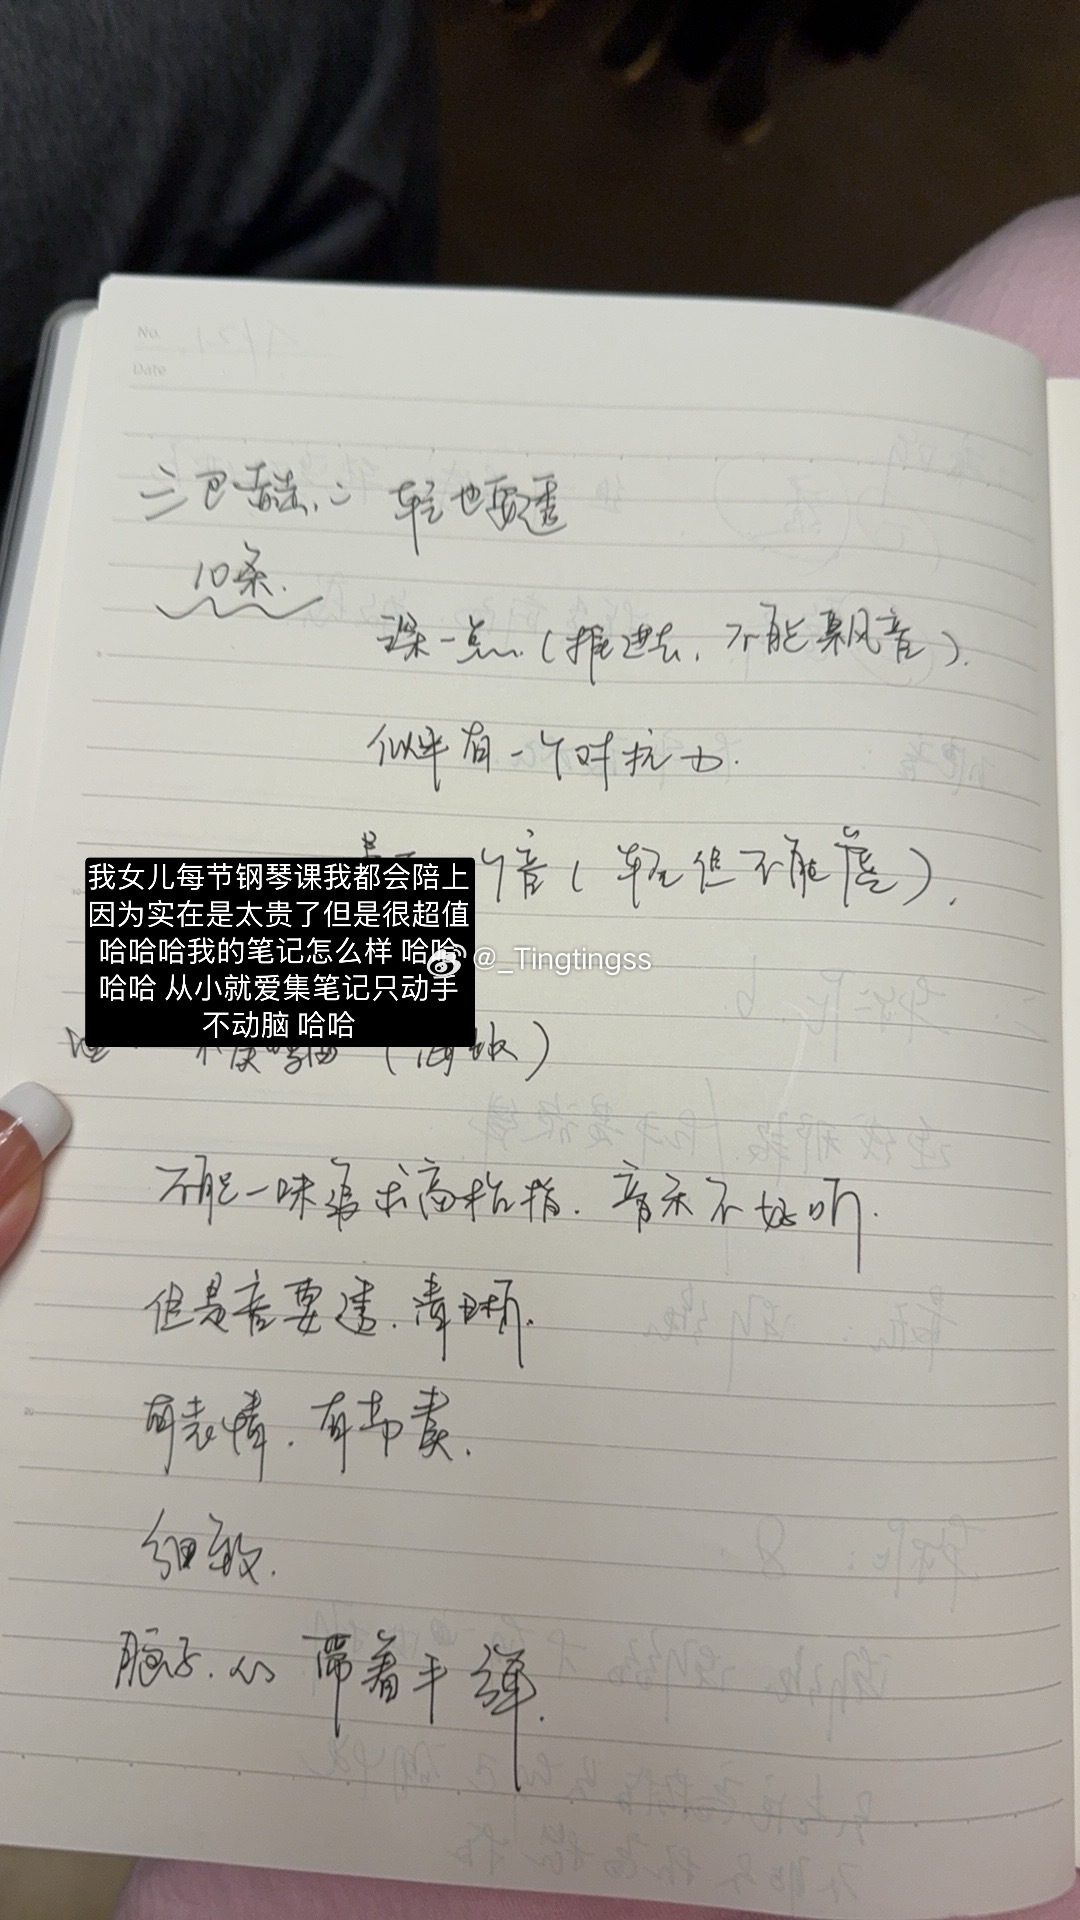 No.
Date
轻也要透
10条.
深一点.(推进去,不能飘音).
似乎有一个对抗力.
个音(轻但不能虚).
我女儿每节钢琴课我都会陪上
因为实在是太贵了但是很超值
哈哈哈我的笔记怎么样 哈哈
哈哈 从小就爱集笔记只动手
不动脑 哈哈
@_Tingtingss
不能一味追求高抬指.音乐不好听.
但是音要透.清晰.
有表情.有节奏.
细致.
脑子.心 带着手弹.